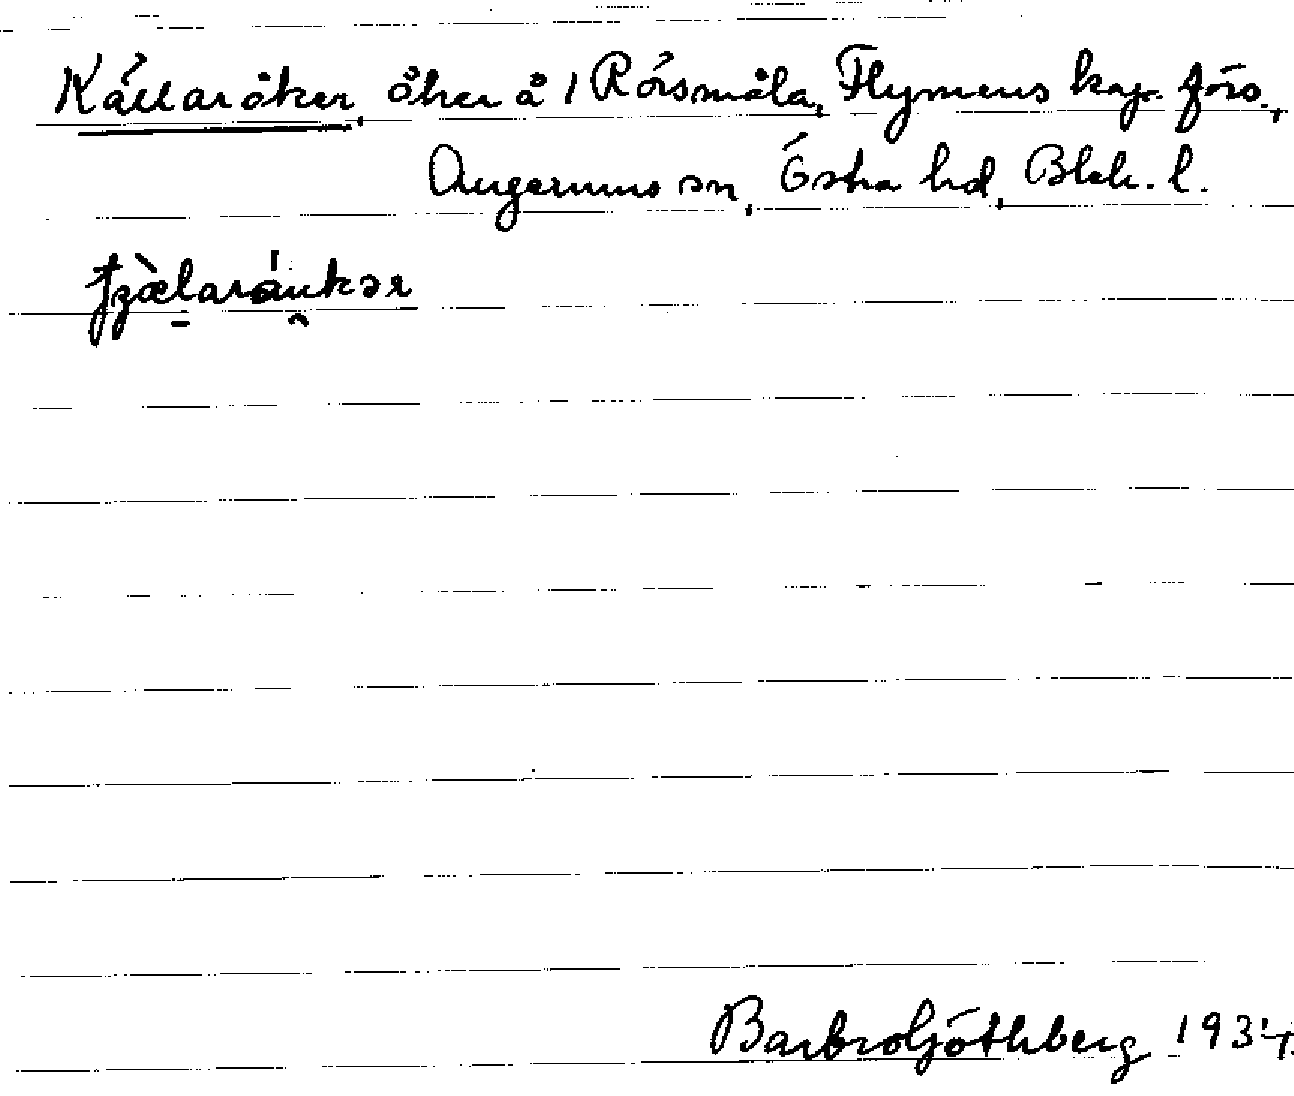 Källaråker, åker å 1 Rörsmåla, Flymens kap. förs.,
Augerums sn, Östra hd, Blek. l.
Barbro Göthberg 1934.